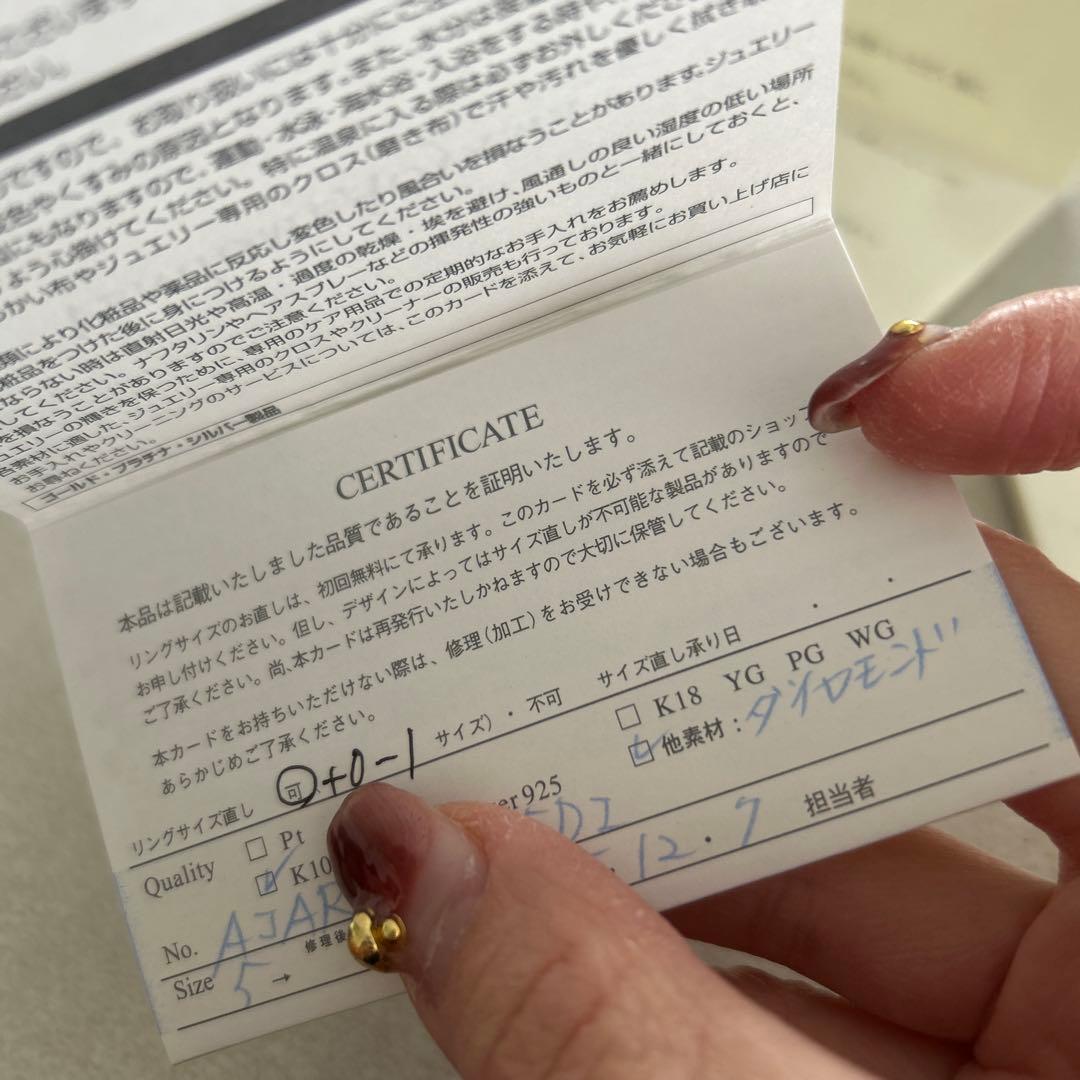 お取り扱いには十分にご
となります。また、水分は
色やくすみの原因
にもなりますので、運動・水泳・海水浴・入浴をする時
よう心掛けてください。特に温泉に入る際は必ずお外しくださ
かい布やジュエリー専用のクロス(磨き布)で汗や汚れを優しく拭き
類により化粧品や薬品に反応し変色したり風合いを損なうことがあります。ジュエリー
粧品をつけた後に身につけるようにしてください。
ならない時は直射日光や高温・過度の乾燥・埃を避け、風通しの良い湿度の低い場所
してください。ナフタリンやヘアスプレーなどの揮発性の強いものと一緒にしておくと、
を損なうことがありますのでご注意ください。
ュエリーの輝きを保つために、専用のケア用品での定期的なお手入れをお薦めします。
色素材に適した、ジュエリー専用のクロスやクリーナーの販売も行っております。
お手入れやクリーニングのサービスについては、このカードを添えて、お気軽にお買い上げ店に
お尋ねください。
ゴールド・プラチナ・シルバー製品
CERTIFICATE
本品は記載いたしました品質であることを証明いたします。
リングサイズのお直しは、初回無料にて承ります。このカードを必ず添えて記載のショップ
お申し付けください。但し、デザインによってはサイズ直しが不可能な製品がありますので
ご了承ください。尚、本カードは再発行いたしかねますので大切に保管してください。
本カードをお持ちいただけない際は、修理(加工)をお受けできない場合もございます。
あらかじめご了承ください。
リングサイズ直し 可 +0-1 サイズ)・不可 サイズ直し承り日 . .
Quality □ Pt er925 □ K18 YG PG WG
□ K10 □ 他素材:ダイヤモンド
No. AJAR EDI .12.7 担当者
Size 5 → 修理後